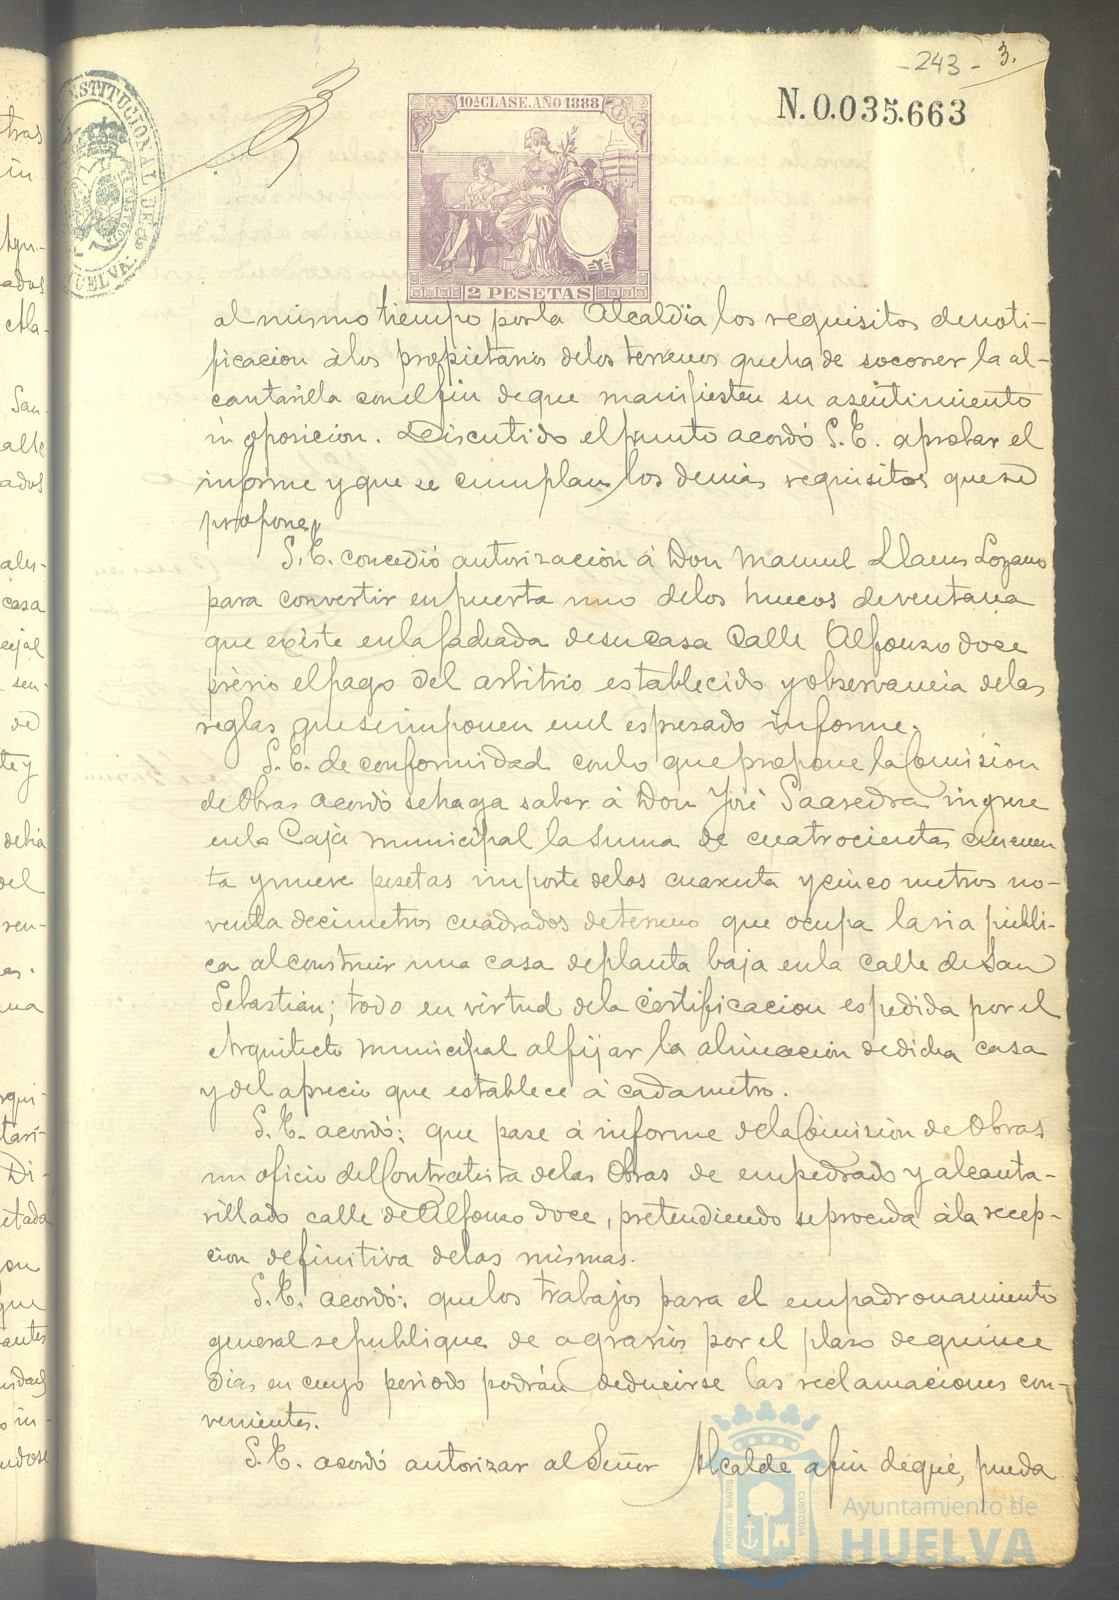 - 243 - 3.
N. 0.035.663
10ª CLASE. AÑO 1888
2 PESETAS
CONSTITUCIONAL DE
HUELVA.
al mismo tiempo por la Alcaldia los requisitos de noti-
ficacion á los propietarios de los terrenos que ha de socorrer la al-
cantarilla con el fin de que manifiesten su asentimiento
ú oposicion. Discutido el punto acordó S.E. aprobar el
informe y que se cumplan los demás requisitos que se
propone,
S.E. concedió autorizacion á Don Manuel Llanes Lozano
para convertir en puerta uno de los huecos de ventana
que existe en la fachada de su casa Calle Alfonso doce
prévio el pago del arbitrio establecido y observancia de las
reglas que se imponen en el espresado informe.
S.E. de conformidad con lo que propone la Comision
de Obras acordó se haga saber á Don José Saavedra ingrese
en la Caja municipal la suma de cuatrocientas cincuen
ta y nueve pesetas importe de los cuarenta y cinco metros no-
venta decimetros cuadrados de terreno que ocupa la via públi-
ca al construir una casa de planta baja en la calle de San
Sebastián; todo en virtud de la certificacion espedida por el
Arquitecto municipal al fijar la alineacion de dicha casa
y del aprecio que establece á cada metro.
S.E. acordó: que pase á informe de la Comisión de Obras
un oficio del Contratista de las Obras de empedrado y alcanta-
rillado calle de Alfonso doce, pretendiendo se proceda á la recep-
cion definitiva de las mismas.
S.E. acordó: que los trabajos para el empadronamiento
general se publique de agravios por el plazo de quince
dias en cuyo periodo podrán deducirse las reclamaciones con-
venientes.
S.E. acordó autorizar al Señor Alcalde a fin de que, pueda
PORTUS MARIS
CUSTODIA
Ayuntamiento de
HUELVA